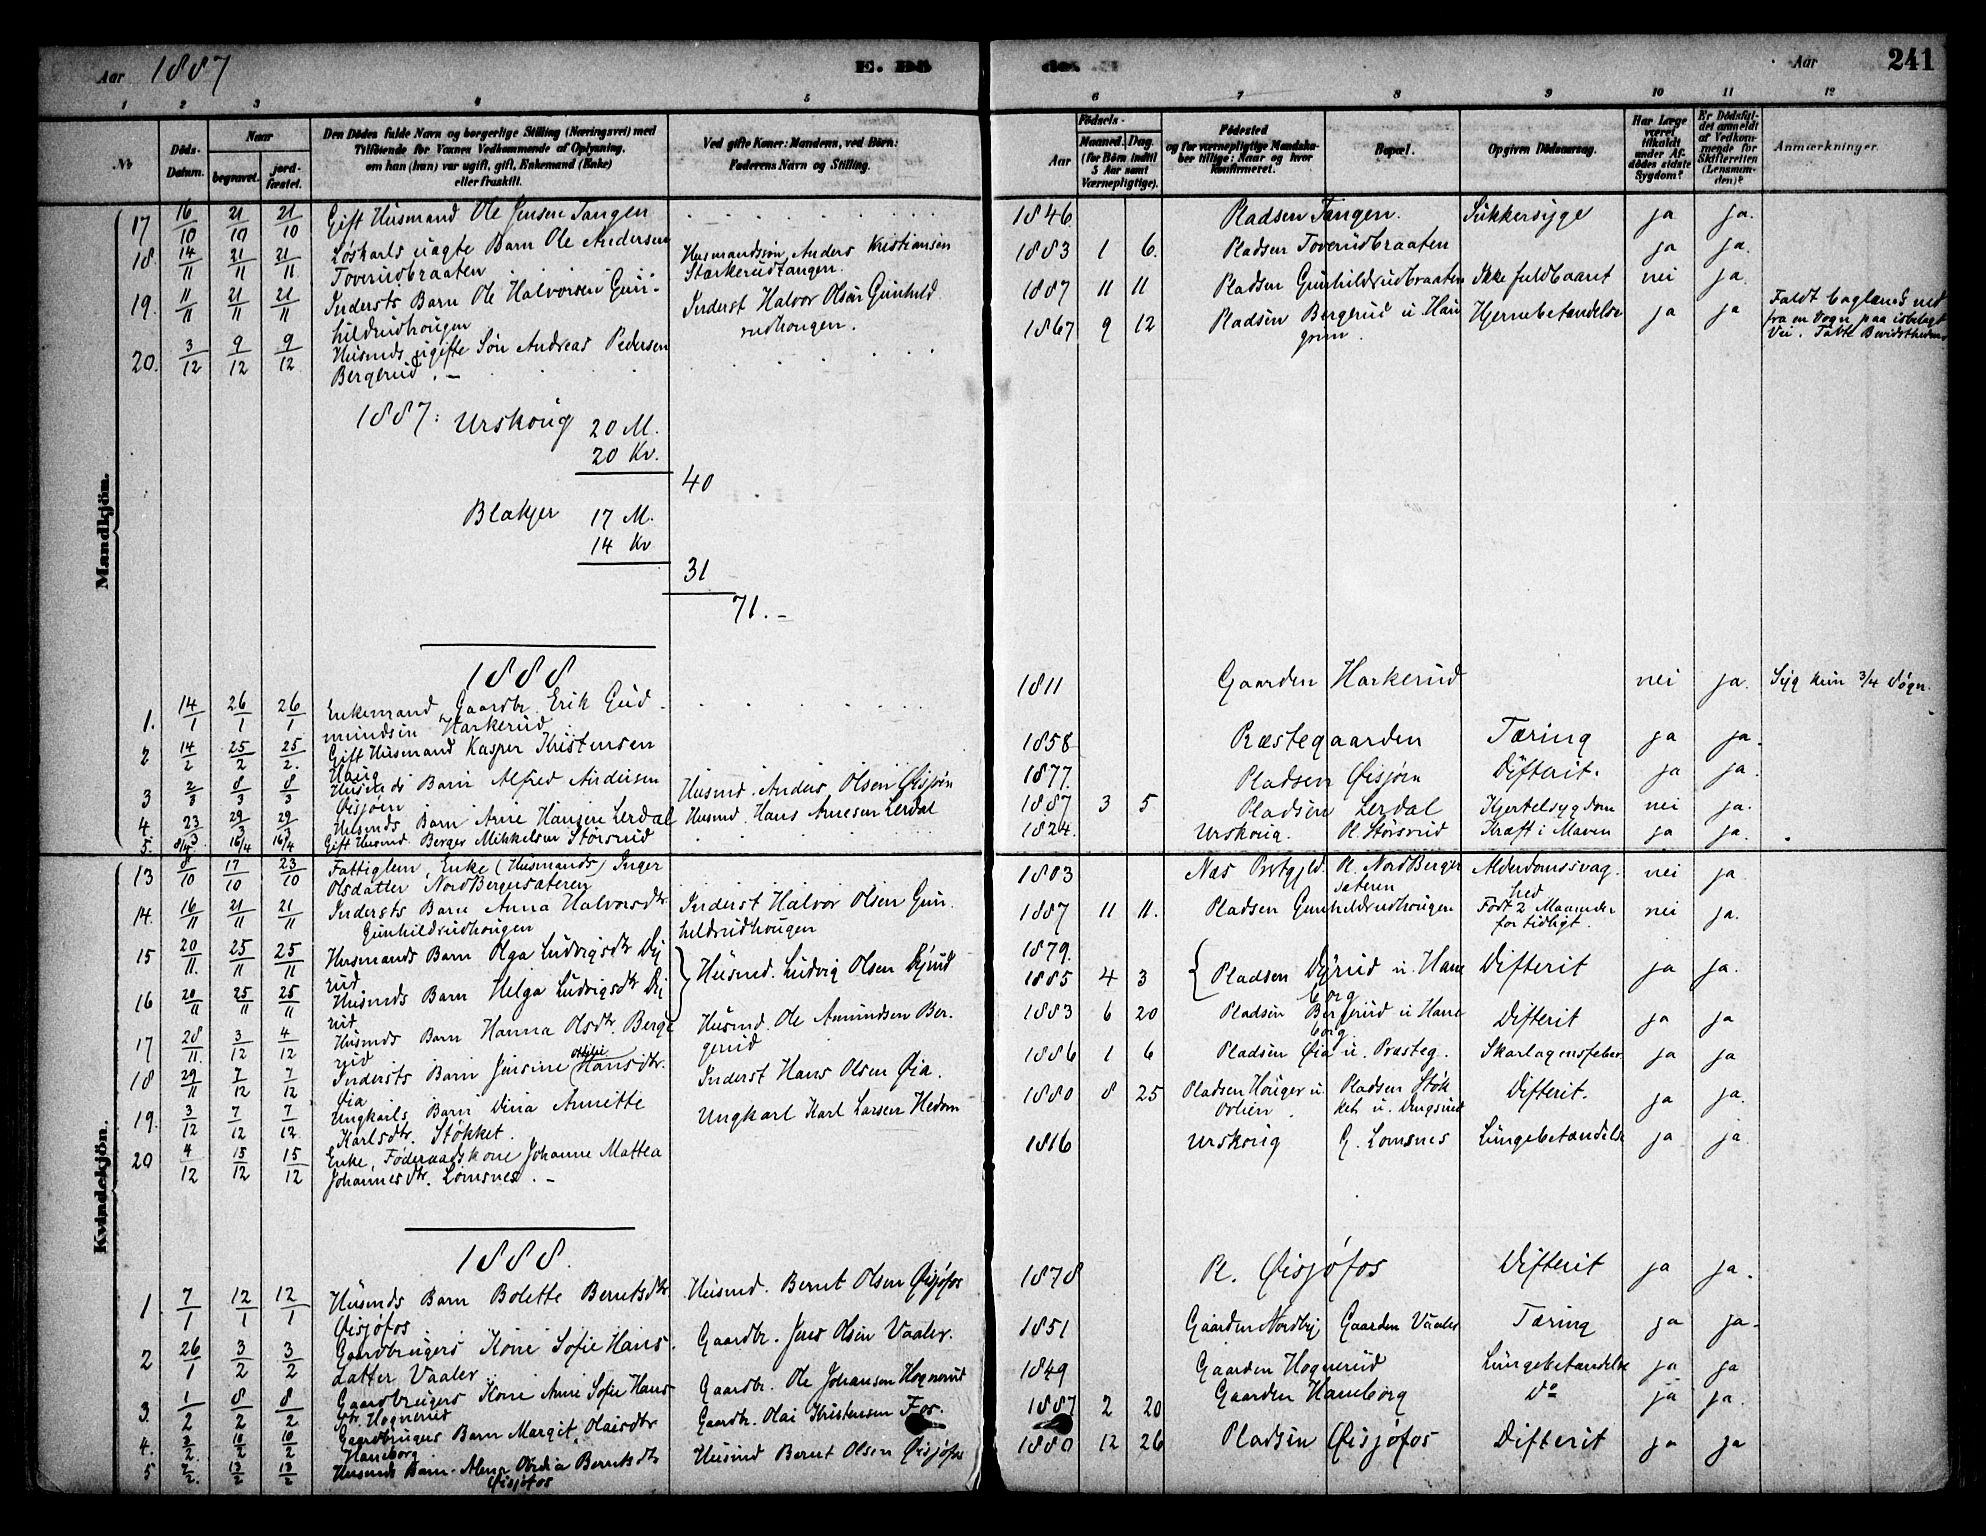 Aar 1887 E. Dö de. Aar 241
1 2 3 4 5 6 7 8 9 10 11 12
No Döds-Datum. Naar begravet. jordfæstet. Den Dödes fulde Navn og borgerlige Stilling (Næringsvei) med
Tilföiende for Voxnes Vedkommende af Oplysning,
om han (hun) var ugift, gift, Enkemand (Enke)
eller fraskilt.
Ved gifte Koner: Mandens, ved Börn:
Faderens Navn og Stilling.
Födsels-
Aar Maaned. Dag.
(for Börn indtil
5 Aar samt
Værnepligtige).
Födested
og for værnepligtige Mandskaber tillige: Naar og hvor
konfirmeret.
Bopæl. Opgiven Dödsaarsag.
Har Læge
været
tilkaldt
under Afdödes sidste
Sygdom?
Er Dödsfaldet anmeldt
af Vedkommende for
Skifteretten
(Lensmanden)?
Anmærkninger.
Mandkjön.
17 16/10 21/10 21/10 Gift Husmand Ole Jensen Tangen 1846 Pladsen Tangen. Sukkersyge ja ja.
18. 14/11 21/11 21/11 Løskarls uægte Barn Ole Andersen Husmandssøn Anders Kristiansen 1883 1 6. Pladsen Toverudbraaten ja ja.
Toverudbraaten Stærkerudtangen.
19. 11/11 21/11 21/11 Inderts Barn Ole Halvorsen Gun- Inderst Halvor Olsen Gunhild 1887 11 11 Pladsen Gunhildrudbraaten Ikke fuldbaaret nei ja.
hildrudhougen rudhougen.
20. 3/12 9/12 9/12 Husmds ugifte Søn Andreas Pedersen 1867 9 12 Pladsen Bergerud u Haugrim. Hjernebetændelse ja ja Faldt baglænds ned
Bergerud. fra en Vogn paa isbelagt
Vei. Tabte Bevidstheden
1887: Urskoug 20 M.
20 Kv.
40
Blakjer 17 M.
14 Kv
31
71.-
1888
1. 14/1 26/1 26/1 Enkemand, Gaardbr. Erik Gud- 1811 Gaarden Harkerud nei ja. Syg kun 3/4 Døgn.
mundsen Harkerud
2 14/2 25/2 25/2. Gift Husmand Kasper Kristensen 1858 Præstegaarden Tæring ja ja.
Haug
3 2/3 8/3 8/3 Husmds Barn Alfred Andersen Husmd. Anders Olsen Øisjøen 1877. Pladsen Øisjøen Difterit. ja ja.
Øisjøen
4. 23/3 29/3 29/3 Husmds Barn Arne Hansen Lerdal Husmd. Hans Arnesen Lerdal 1887 3 5 Pladsen Lerdal Kjertelsygdom nei ja.
5. 8/4 16/4 16/4 Gift Husmd. Berger Mikkelsen Størsrud 1824. Urskoug. Pl. Størsrud Kræft i Maven ja ja.
Kvindekjön.
13 8/10 17/10 23/10 Fattiglem, Enke (Husmands) Inger 1803 Næs Prstgjld. Pl. NordBerger Alderdomssvag- nei ja.
Olsdatter NordBergersæteren sæteren hed
14. 16/11 21/11 21/11 Inderts Barn Anna Halvorsdtr Inderst Halvor Olsen Gun- 1887 11 11. Pladsen Gunhildrudhougen Født 2 Maaneder nei ja.
Gunhildrudhougen hildrudhougen for tidligt.
15 20/11. 25/11 25/11 Husmands Barn Olga Ludvigsdtr Dy Husmd. Ludvig Olsen Dyrud 1879. Pladsen Dyrud u. Haneborg Difterit ja ja.
rud
16 20/11 25/11 25/11 Husmds Barn Helga Ludvigsdtr Dy 1885 4 3
rud
17 28/11. 3/12 4/12 Husmds Barn Hanna Olsdtr. Berge Husmd. Ole Amundsen Ber- 1883 6 20 Pladsen Bergerud u Haneborg Difterit ja ja
rud gerud
18 29/11 7/12 7/12 Inderts Barn Jensine Hansdtr. Inderst Hans Olsen Øia. 1886 1 6 Pladsen Øia u. Præsteg. Skarlagensfeber ja ja
Øia
19. 3/12 7/12 7/12 Ungkarls Barn Dina Annette Ungkarl Karl Larsen Hedom 1880 8 25 Pladsen Houger u Pladsen Støk Difterit. ja ja.
Karlsdtr. Støkket. ket u.
20 4/12 15/12 15/12 Enke, Føderaadskone Johanne Mattea 1816 Urskoug G. Lomsnes Lungebetændelse ja ja.
Johannesdtr. Lomsnes.
1888.
1. 7/1 12/1 12/1 Husmds Barn Bolette Berntsdtr Husmd. Bernt Olsen Øisjøfos 1878 Pl. Øisjøfos Difterit ja ja.
Øisjøfos
2 26/1 3/2 3/2 Gaardbrugers Kone Sofie Hans- Gaardbr. Jens Olsen Vaaler. 1851 Gaarden Nordby Gaarden Vaaler Tæring ja ja.
datter Vaaler
3. 1/2 8/2 8/2 Gaardbrugers Kone Anne Sofie Hans Gaardbr. Ole Johansen Hognerud 1849 Gaarden Hognerud Lungebetændelse ja ja
dtr. Hognerud
4. 3/2. 10/2 10/2 Gaardbrugers Barn Margit Olaisdtr Gaardbr. Olai Kristensen Fos. 1887 2 20 Gaarden Haneborg do ja ja.
Haneborg
5 7/2. 13/2 13/2 Husmds Barn Berntsdtr Husmd Bernt Olsen Øisjøfos 1880 12 26 Pladsen Øisjøfos Difterit ja ja
Øisjøfos